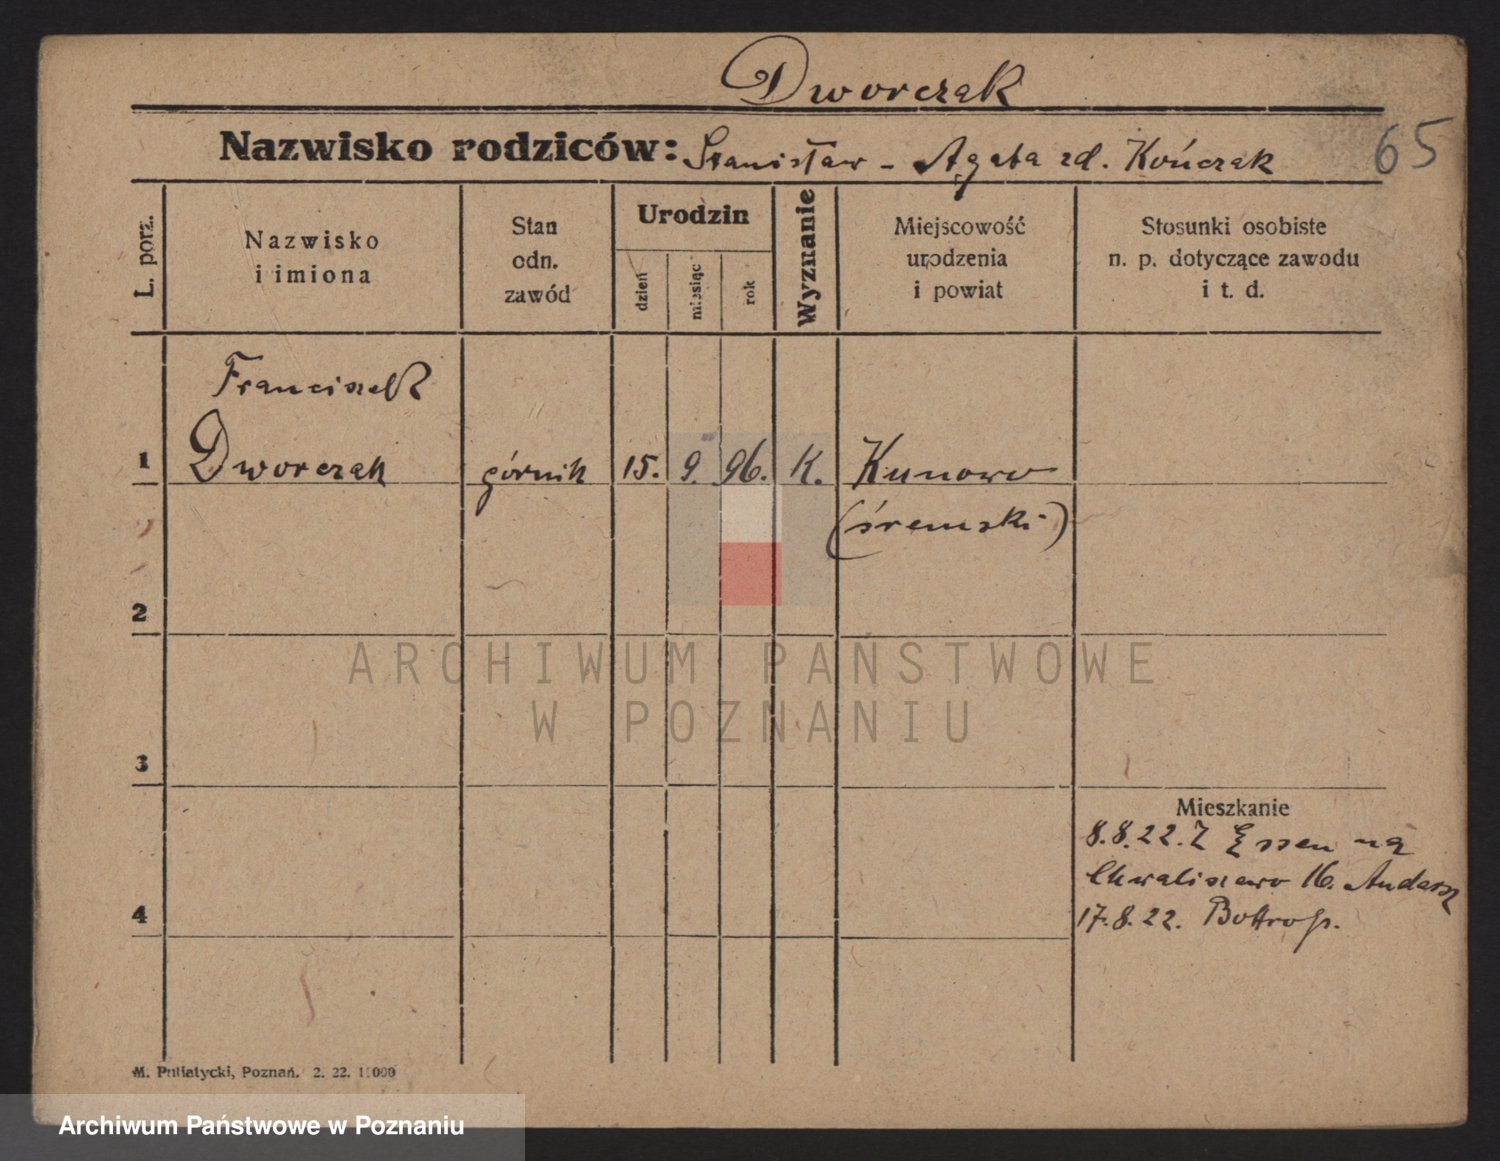 Dworczak
Nazwisko rodziców: Stanisław - Agata zd. Kończak
65
L. porz.
Nazwisko
i imiona
Stan
odn.
zawód
Urodzin
dzień
miesiąc
rok
Wyznanie
Miejscowość
urodzenia
i powiat
Stosunki osobiste
n. p. dotyczące zawodu
i t. d.
Franciszek
1 Dworczak górnik 15. 9. 96. K. Kunowo
(śremski)
2
3
4
Mieszkanie
8.8.22. Z Essen na
Chwaliszewo 16.
17.8.22. Bottrop.
M. Putiatycki, Poznań. 2. 22. 11000
ARCHIWUM PAŃSTWOWE
W POZNANIU
Archiwum Państwowe w Poznaniu